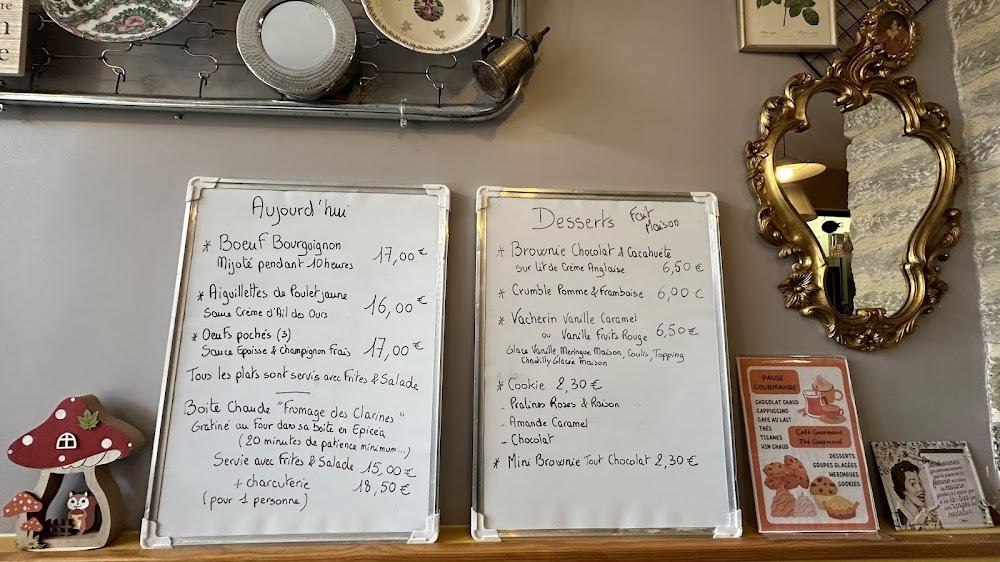 Aujourd'hui
* Boeuf Bourguignon 17,00€
Mijoté pendant 10 heures
* Aiguillettes de Poulet jaune 16,00€
Sauce Crème d'Ail des Ours
* Oeufs pochés (3)
Sauce Epoisse & Champignon Frais 17,00€
Tous les plats sont servis avec Frites & Salade
Boite Chaude "Fromage des Clarines"
Gratiné au four dans sa boite en Epicéa
(20 minutes de patience minimum...)
Servie avec Frites & Salade 15,00€
+ charcuterie 18,50€
(pour 1 personne)
Desserts Fait Maison
* Brownie Chocolat & Cacahuète
sur lit de Crème Anglaise 6,50€
* Crumble Pomme & Framboise 6,00€
* Vacherin Vanille Caramel
ou Vanille Fruits Rouge 6,50€
Glace Vanille, Meringue Maison, Coulis, Topping
Chantilly Glacée Maison
* Cookie 2,30€
- Pralines Roses & Raison
- Amande Caramel
- Chocolat
* Mini Brownie Tout Chocolat 2,30€
PAUSE
GOURMANDE
CHOCOLAT CHAUD
CAPPUCCINO
CAFE AU LAIT
THÉS
TISANES
VIN CHAUD
Café Gourmand
Thé Gourmand
DESSERTS
COUPES GLACÉES
MERINGUES
COOKIES